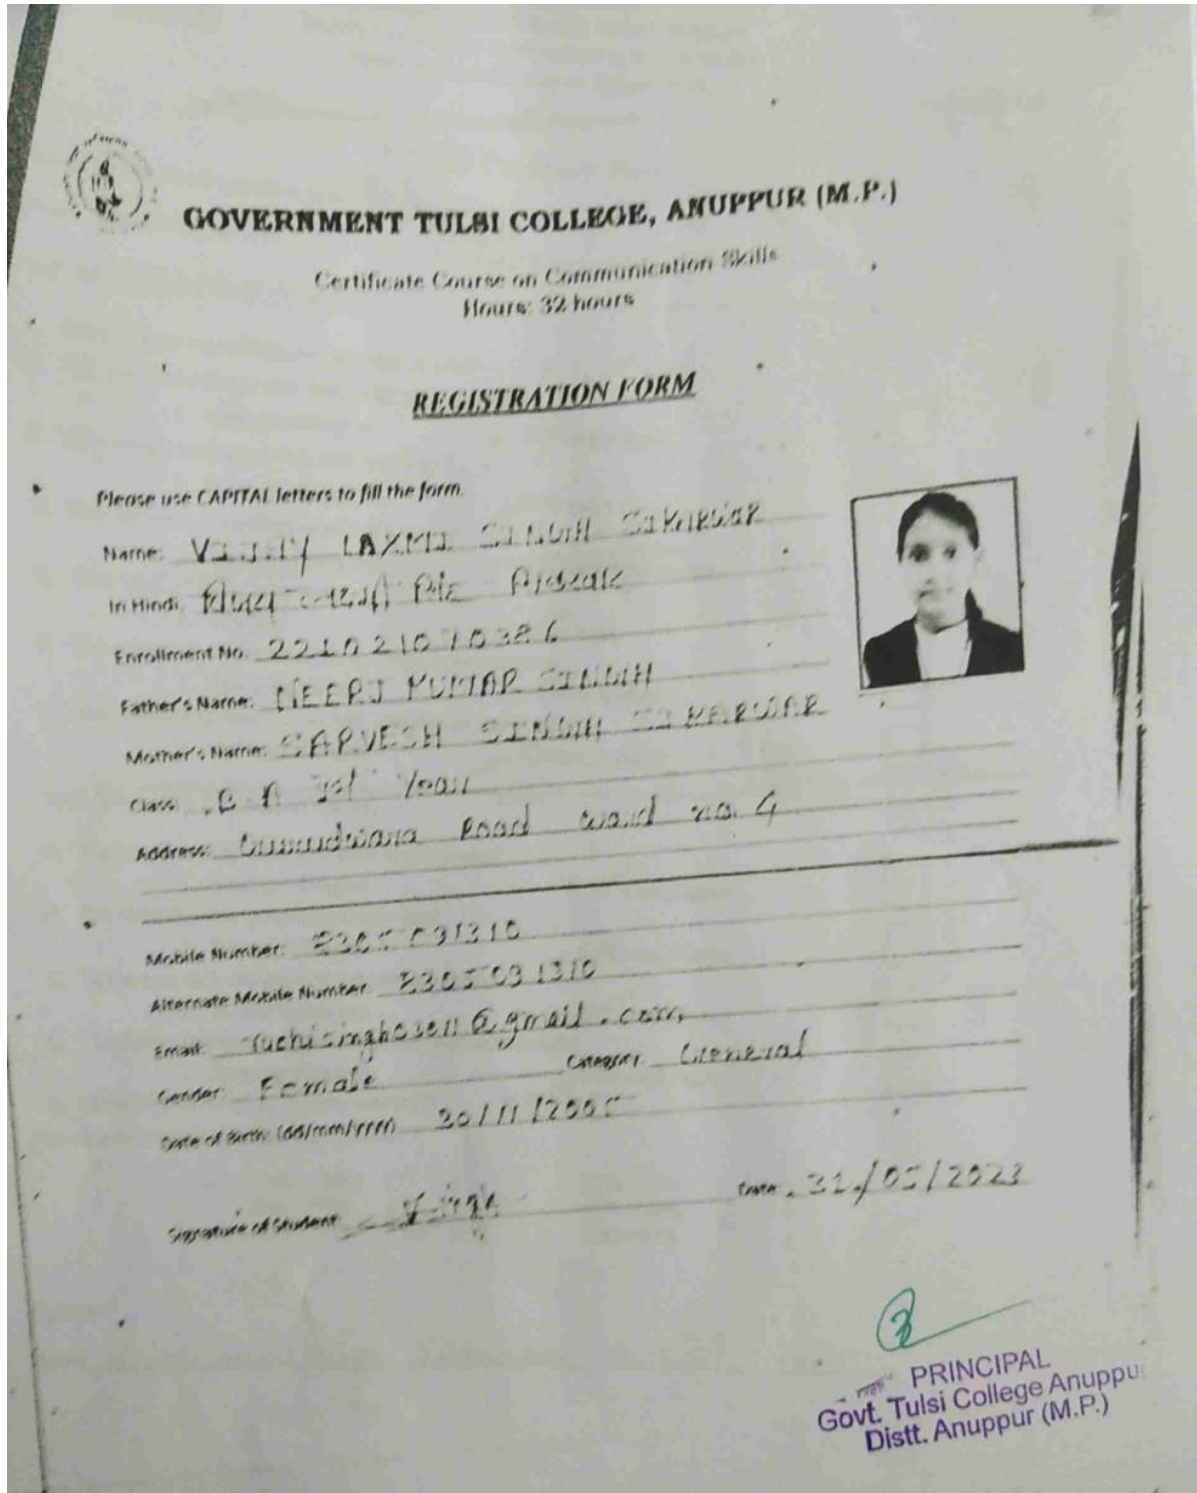 GOVERNMENT TULSI COLLEGE, ANUPPUR (M.P.)
Certificate Course on Communication Skills
Hours: 32 hours
REGISTRATION FORM
Please use CAPITAL letters to fill the form.
Name: VIJAY LAXMI SINGH SIKARWAR
In Hindi:
Enrollment No. 221021070386
Father's Name: NEERJ KUMAR SINGH
Mother's Name: SARVESH SINGH SIKARWAR
Class: B A Ist Year
Address: Road ward no. 4
Mobile Number:
Alternate Mobile Number
Email: @gmail.com
Gender: Female Category: General
Date of Birth: (dd/mm/yyyy) 20/11/2005
Signature of Student: Date: 31/05/2023
PRINCIPAL
Govt. Tulsi College Anuppu
Distt. Anuppur (M.P.)